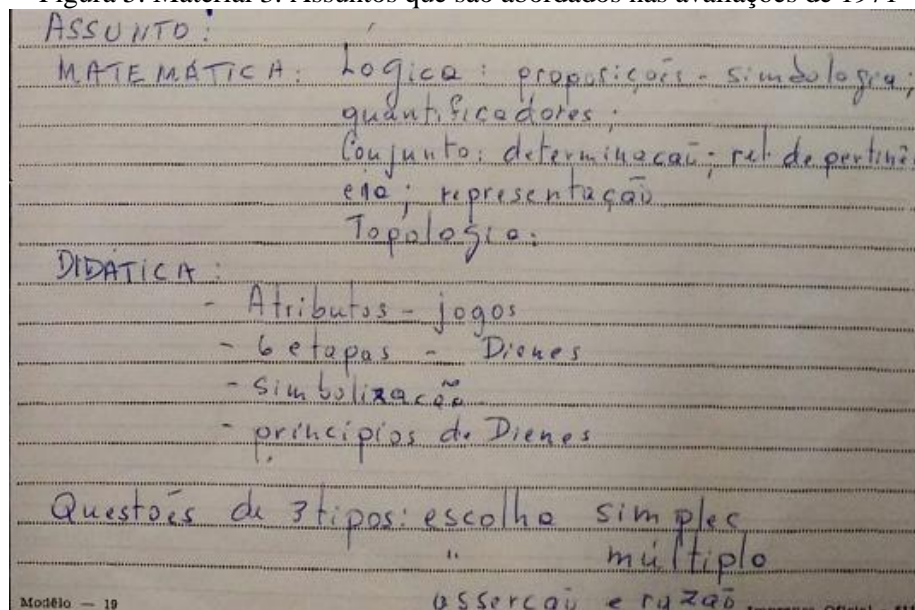 Figura 3: Material 3: Assuntos que são abordados nas avaliações de 1971
ASSUNTO:
MATEMÁTICA: Logica: proposições - simbologia;
quantificadores;
Conjunto: determinação; rel. de pertinên
cia; representação
Topologia:
DIDÁTICA:
- Atributos - jogos
- 6 etapas - Dienes
- simbolização
- princípios de Dienes
Questões de 3 tipos: escolha simples
" múltiplo
asserção e razão
Modêlo — 19